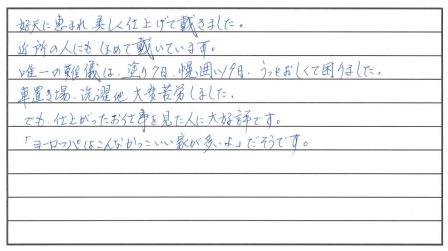 好天に恵まれ美しく仕上げて戴きました。
近所の人にもほめて戴いています。
唯一の難儀は、塗り7日、幌囲い9日、うっとおしくて困りました。
車置き場、洗濯他大変苦労しました。
でも、仕上がったお仕事を見た人に大好評です。
「ヨーロッパはこんなかっこいい家が多いよ」だそうです。